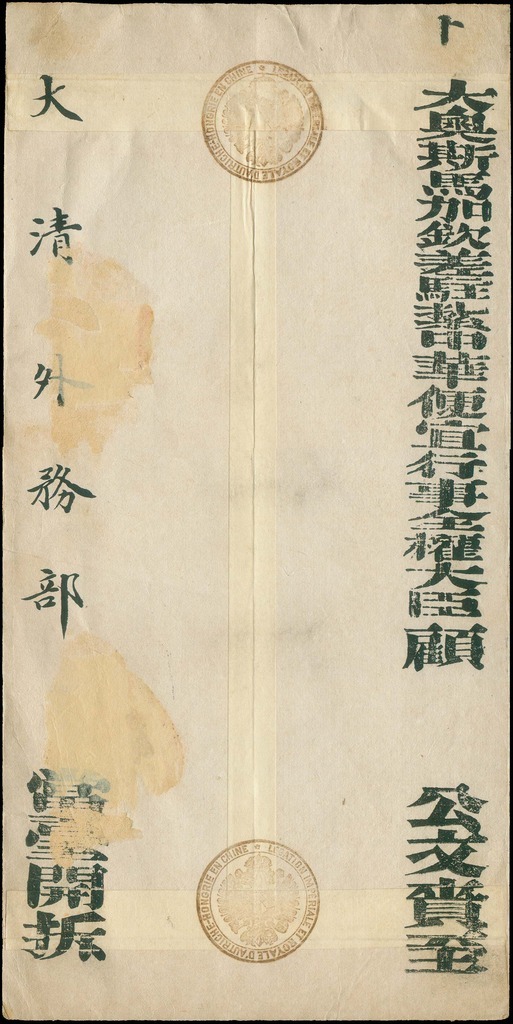 卜
大奧斯馬加欽差駐劄中華便宜行事全權大臣顧
公文賫至
大清外務部
當堂開拆
LEGATION IMPERIALE ET ROYALE D'AUTRICHE-HONGRIE EN CHINE
LEGATION IMPERIALE ET ROYALE D'AUTRICHE-HONGRIE EN CHINE